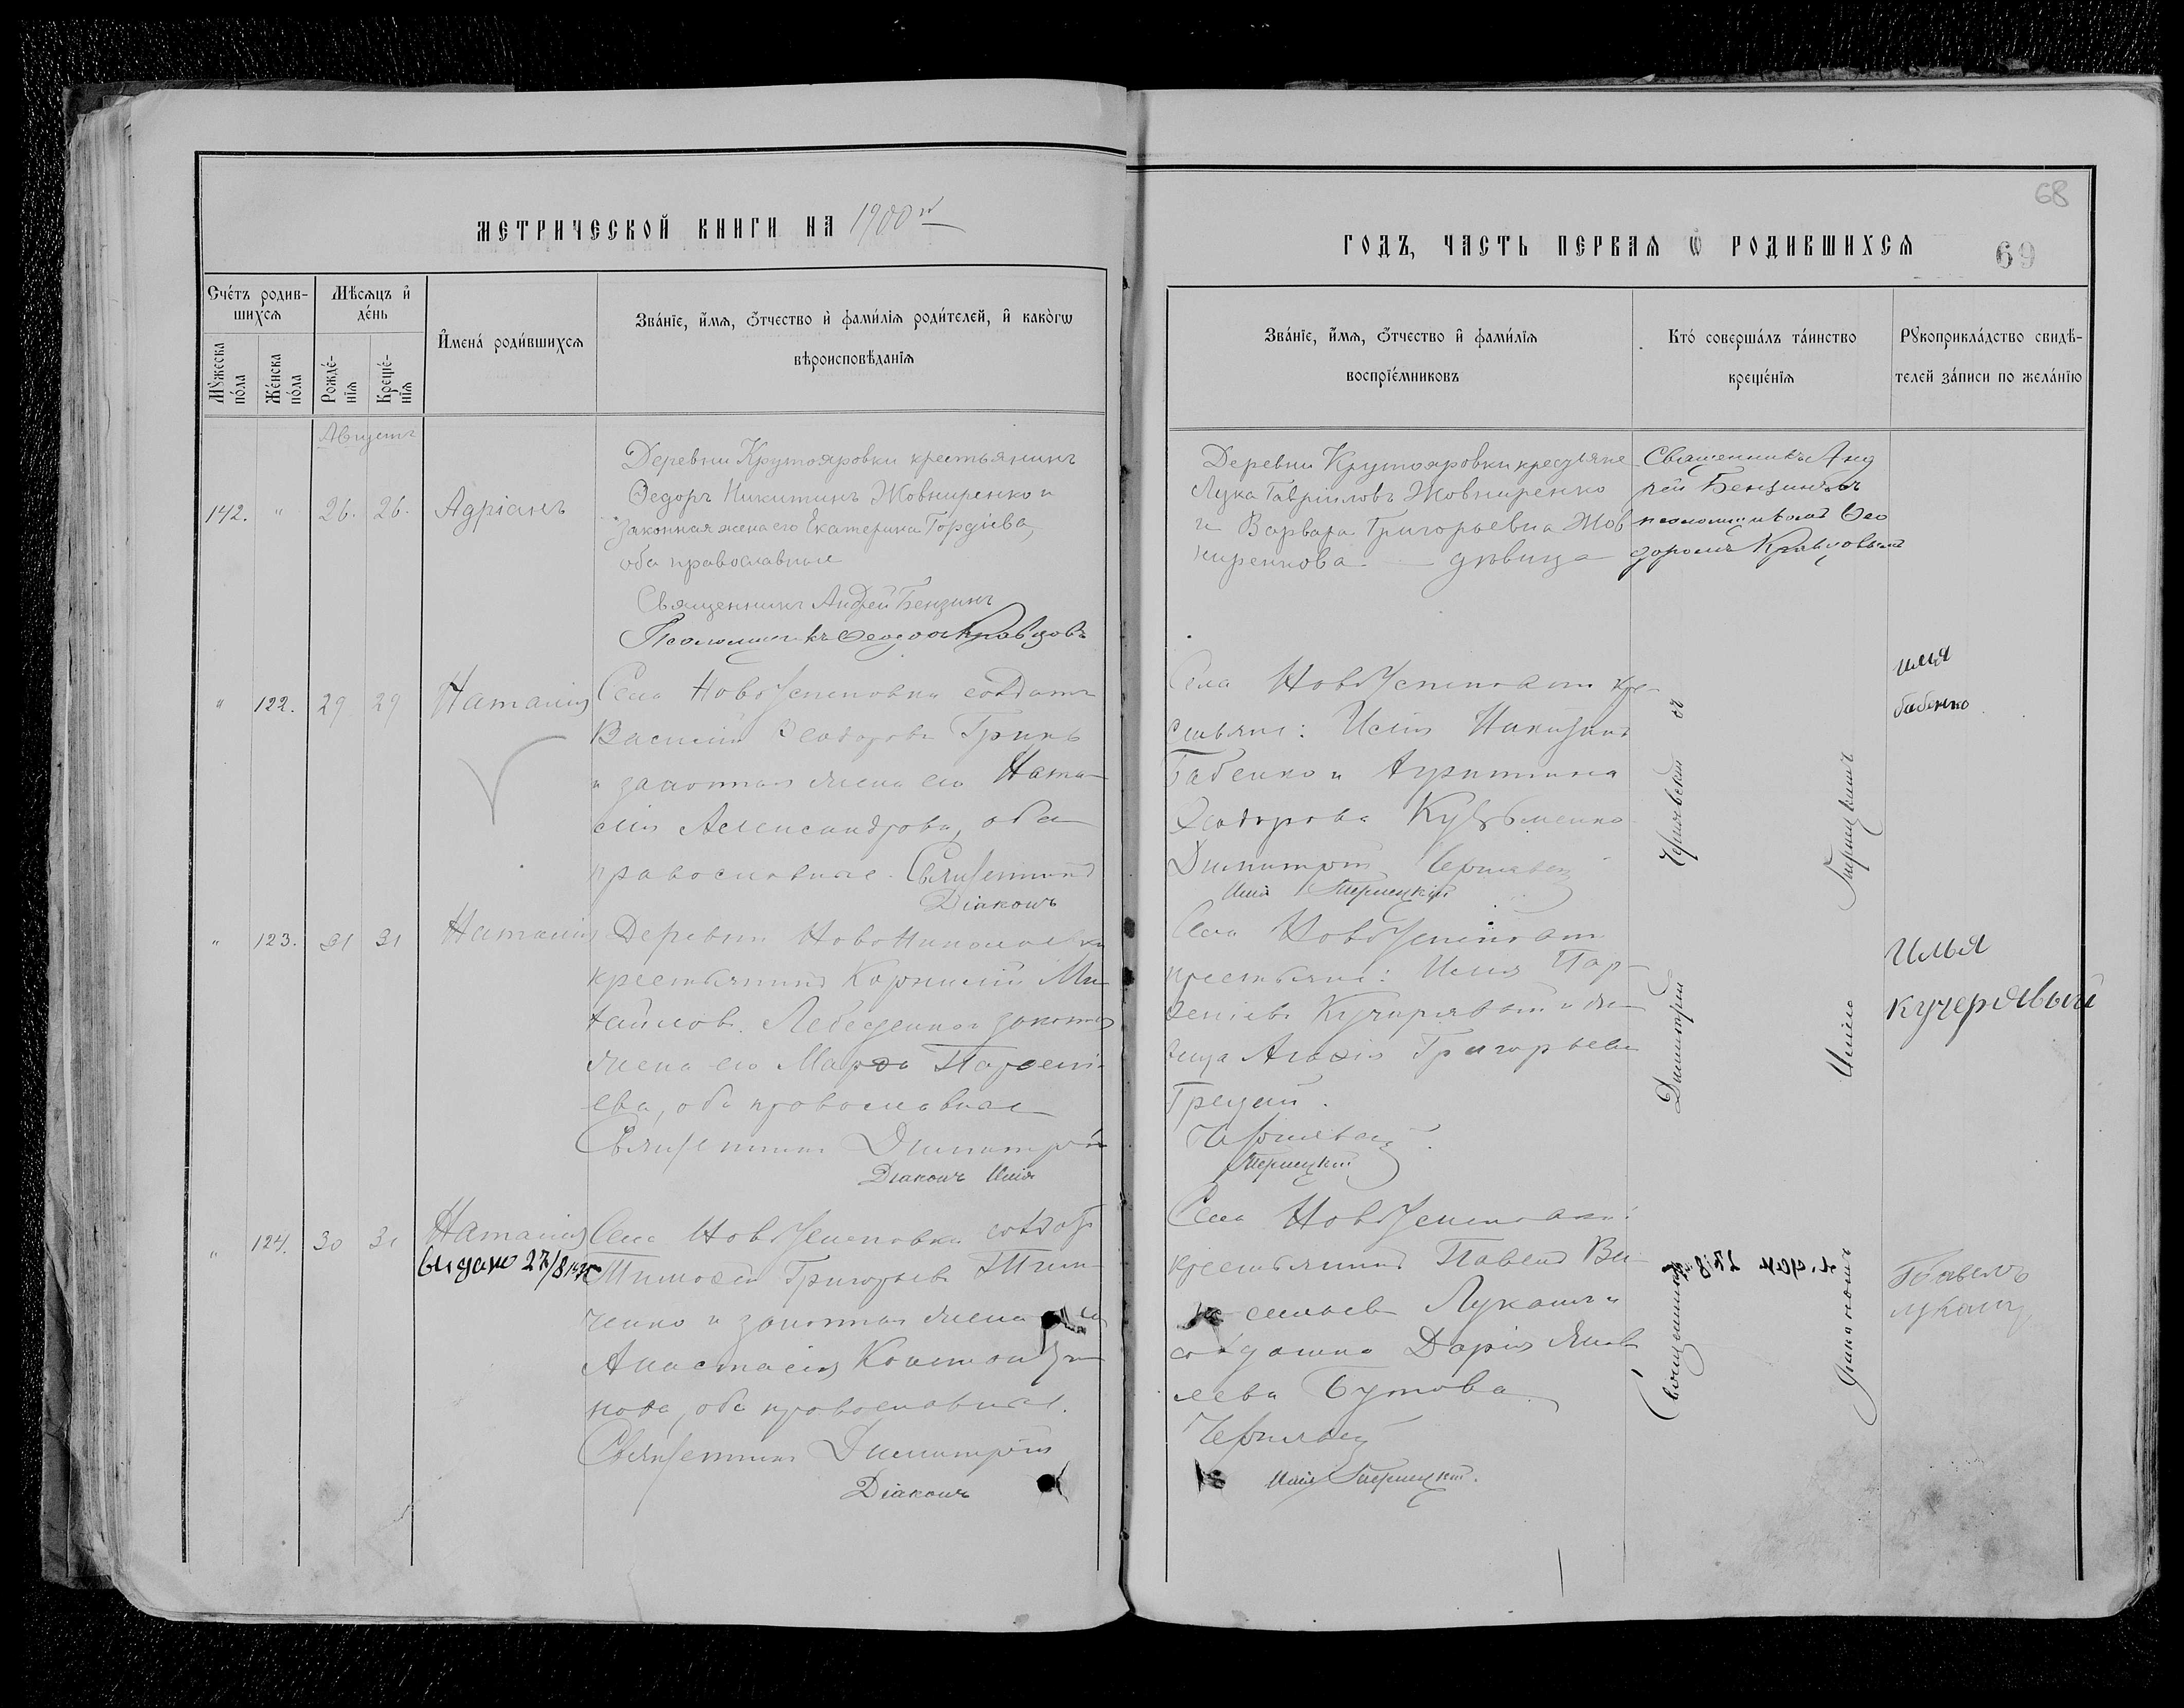 МЕТРИЧЕСКОЙ КНИГИ НА 1900й
Счéтъ родив-
шихсѧ
Мѣсѧцъ и
дéнь
Мꙋжеска
пóла
Жéнска
пóла
Рождé-
нїѧ
Крещé-
нїѧ
Именá родúвшихсѧ
Звáнїе, имѧ, ѻтчество и фамúлїѧ родúтелей, и какóгѡ
вѣроисповѣданїѧ
Августъ
142. " 26. 26. Адріанъ
Деревни Крутояровки крестьянинъ
Ѳедоръ Никитинъ Жовниренко и
законная жена его Екатерина Гордіева,
оба православные
Священникъ Андрей Бензинъ
Псаломщикъ Ѳеодоръ Кравцовъ
" 122. 29 29 Наталія
Села НовоУспеновки солдатъ
Василій Ѳеодоровъ Гринь
и законная жена его Ната-
лія Александрова, оба
православные. Священникъ
Діаконъ
" 123. 31 31 Наталія
Деревни НовоНиколаевки
крестьянинъ Корнилій Ми-
хайловъ Лебеденко и законная
жена его Марѳа Парѳені-
ева, оба православные
Священникъ Димитрій
Діаконъ Илія
" 124. 30 31 Наталія
Выдано 27/8
Села НовоУспеновки солдатъ
Тимоѳей Григорьевъ
ченко и законная жена его
Анастасія Константи-
нова, оба православные.
Священникъ Димитрій
Діаконъ
68
ГОДЪ, ЧАСТЬ ПЕРВАѦ Ѡ РОДИВШИХСѦ
69
Звáнїе, имѧ, ѻтчество и фамúлїѧ
воспрїéмниковъ
Ктó совершáлъ тáинство
крещéнїѧ
Рꙋкоприклáдство свидѣ-
телей зáписи по желáнїю
Деревни Крутояровки крестьяне
Лука Гавріиловъ Жовниренко
и Варвара Григорьевна Жов
ниренкова девица
Священникъ Анд
рей Бензинъ съ
псаломщикомъ Ѳео
доромъ Кравцовымъ
Села НовоУспеновки кре-
стьяне: Илія Никитинъ
Бабенко и Агрипина
Ѳеодорова Кузьменко
Димитрій Чернявскій
Илія Тернецкій
Илья
бабенко
Села НовоУспеновки
крестьяне: Илія Пар-
ѳеніевъ Кучерявый и дѣ-
вица Агаѳія Григорьева
Грецай.
Чернявскій
Тернецкій
Илья
кучерявый
Села НовоУспеновки
крестьянинъ Павелъ Ва-
сильевъ Лукашъ и
солдатка Дарія Яков
лева Бутова
Чернявскій
Илія Тернецкій.
Павелъ
лукашъ
Священникъ Димитрій Чернявскій съ
Діакономъ Иліею Тернецкимъ